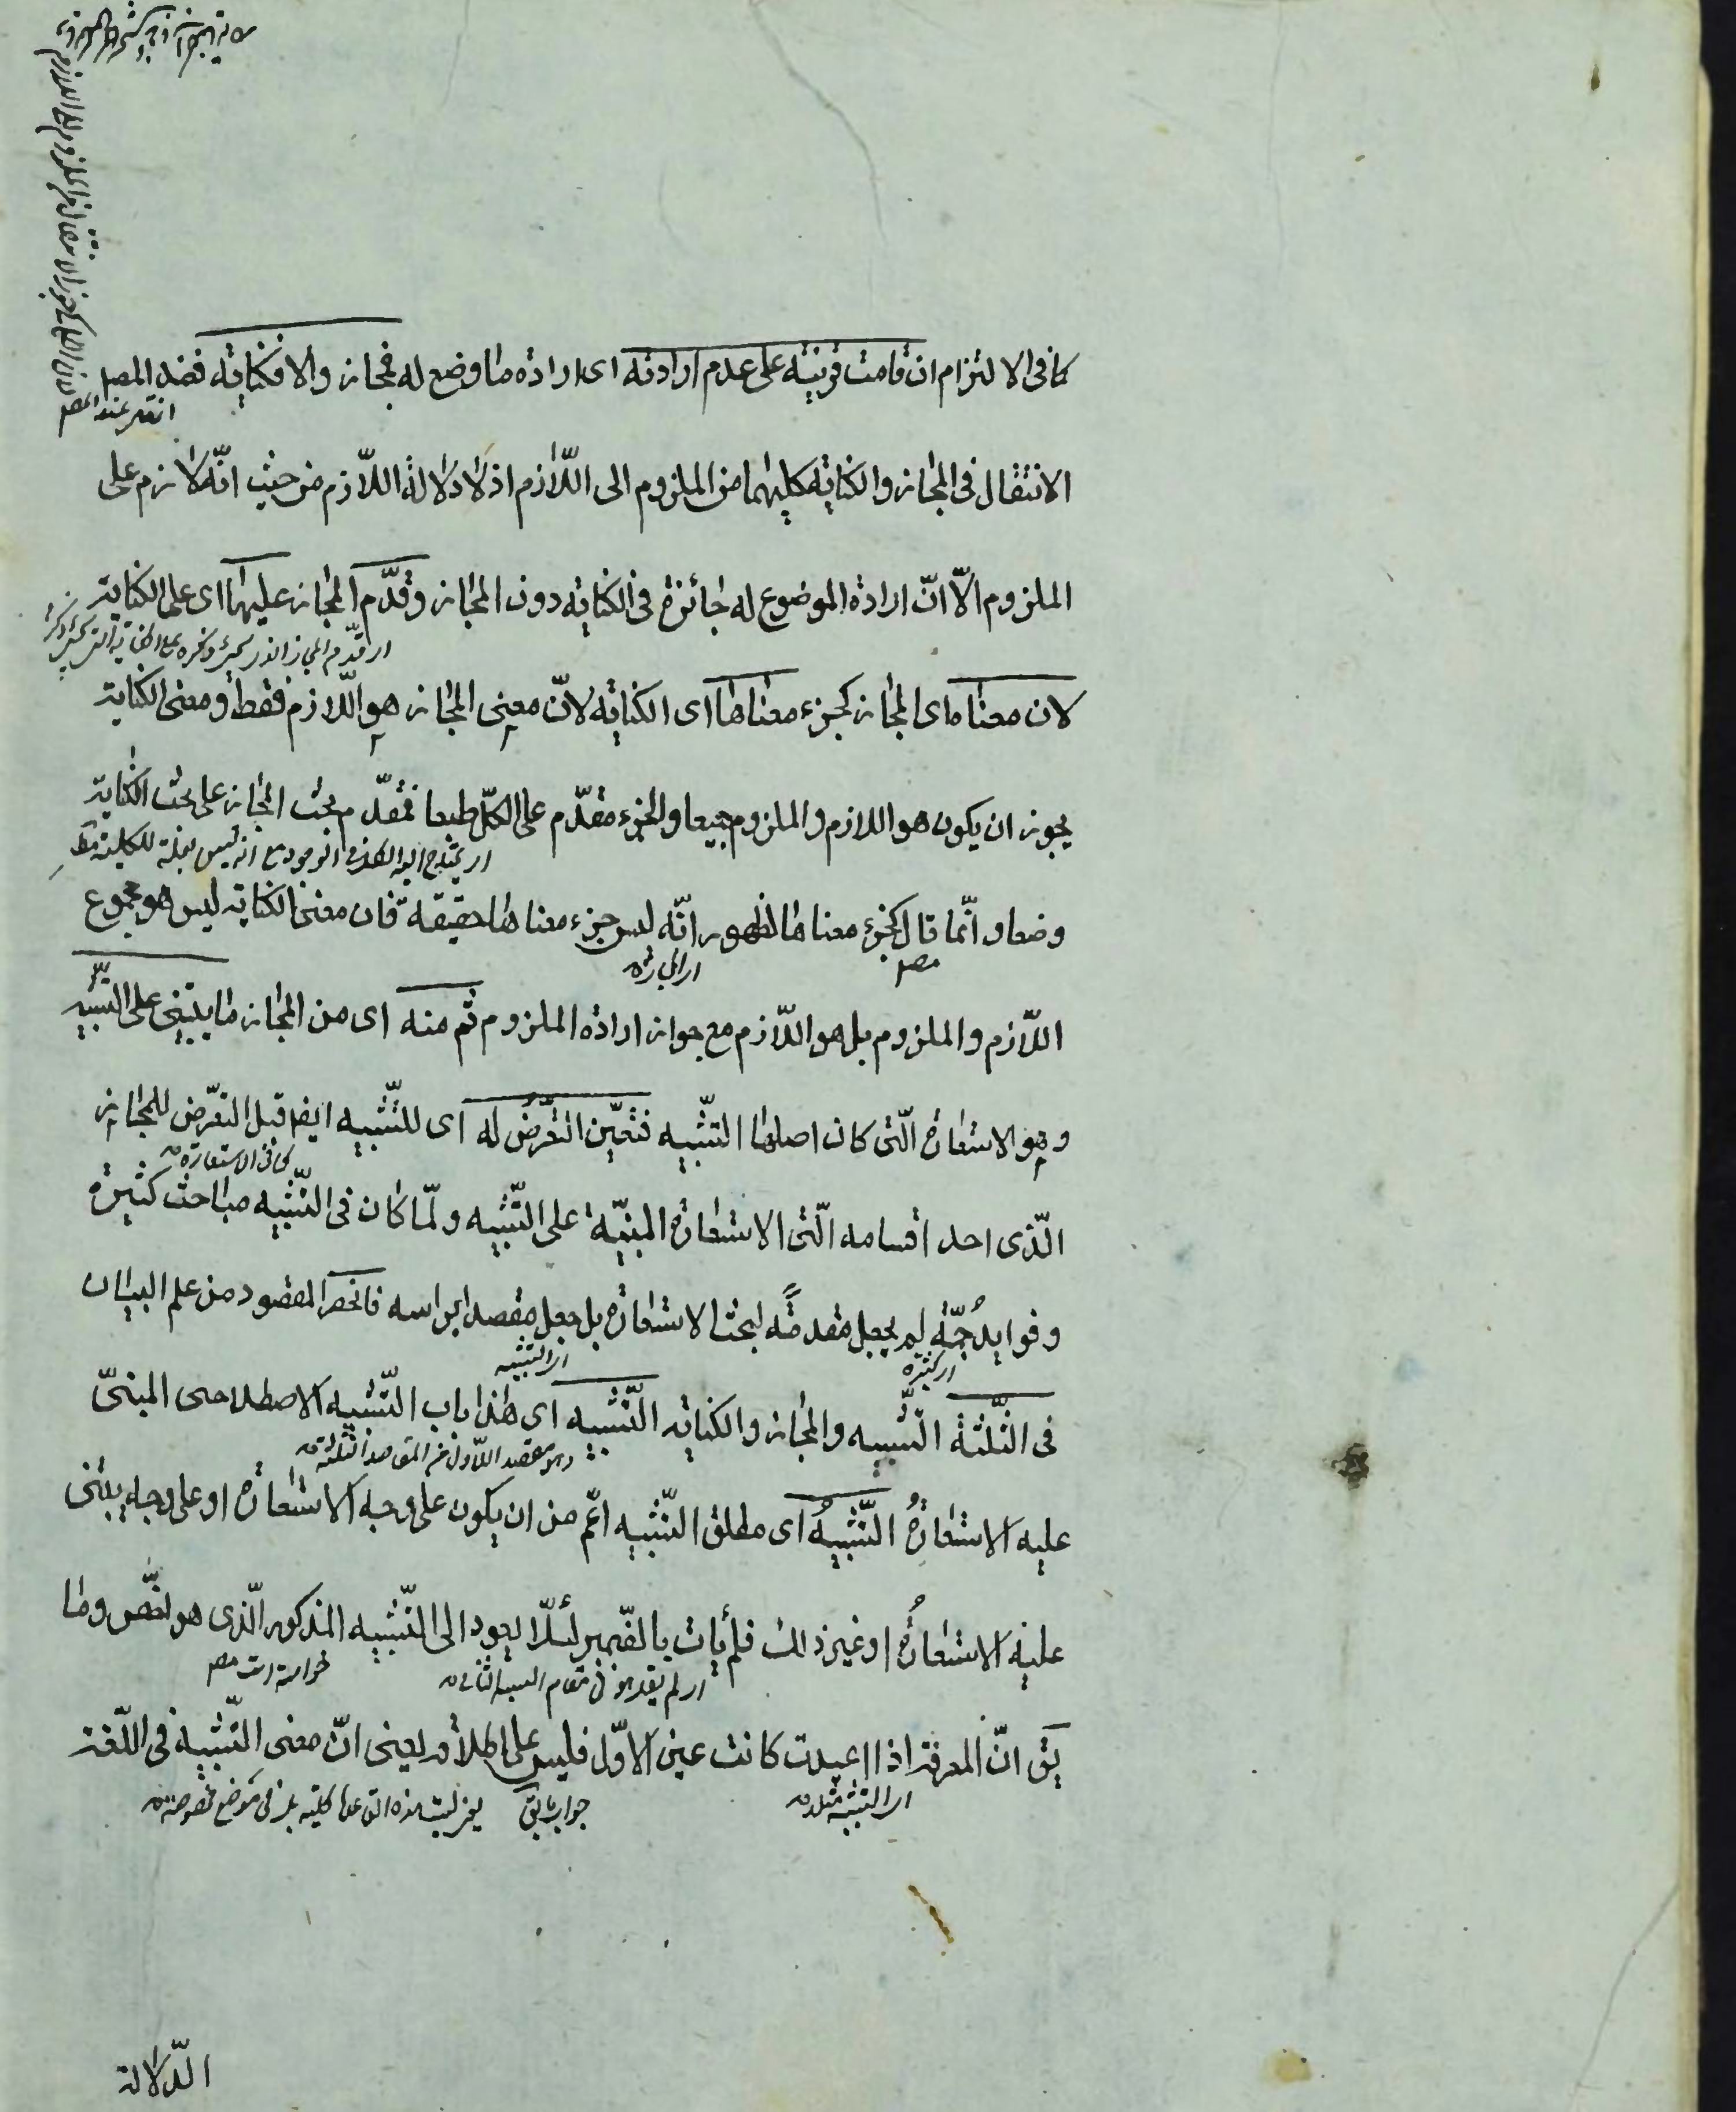 كما فى الالتزام ان قامت قرينة على عدم ارادته اى ارادة ما وضع له فمجاز والا فكناية فعند المصـ
الانتقال فى المجاز والكناية كليهما من الملزوم الى اللّازم اذ لا دلالة اللّازم من حيث انّه لازم على
الملزوم الّا انّ ارادة الموضوع له جائزة فى الكناية دون المجاز وقدّم المجاز عليها اى على الكناية
لان معناه اى المجاز كجزء معناها اى الكناية لانّ معنى المجاز هو اللّازم فقط ومعنى الكناية
يجوز ان يكون هو اللازم والملزوم جميعا والجزء مقدّم على الكلّ طبعا فقدّم بحث المجاز على بحث الكناية
وضعا وانّما قال كجزء معناها لظهور انّه ليس جزء معناها حقيقة فان معنى الكناية ليس هو مجموع
مصـ
اى المجاز
اللّازم والملزوم بل هو اللّازم مع جواز ارادة الملزوم ثم منه اى من المجاز ما يبتنى على التّشبيه
وهو الاستعارة الّتى كان اصلها التّشبيه فتعيّن التّعرّض له اى للتّشبيه ايضا قبل التعّرض للمجاز
كما فى الاستعارة
الّذى احد اقسامه الّتى الاستعارة المبنيّة على التّشبيه ولمّا كان فى التّشبيه مباحث كثيرة
وفوايدُ جمّة لم يجعل مقدمةً لبحث الاستعارة بل جعل مقصدا براسه فانحصر المقصود من علم البيان
اى كثيرة
اى التشبيه
فى الثّلثة التّشبيه والمجاز والكناية التّشبيه اى هذا باب التّشبيه الاصطلاحى المبنىّ
وهو مقصد الاول من المقاصد الثلثة
عليه الاستعارةُ التّشبيهُ اى مطلق التّشبيه اعّم من ان يكون على وجه الاستعارة او على وجه يبتنى
عليه الاستعارةُ او غير ذلك فلم يأت بالضمير لئلّا يعود الى التّشبيه المذكور الّذى هو اخصّ وما
يق انّ المعرفة اذا اعيدت كانت عين الاوّل فليس على اطلاقه يعنى انّ معنى التّشبيه فى اللّغة
الدّلالة